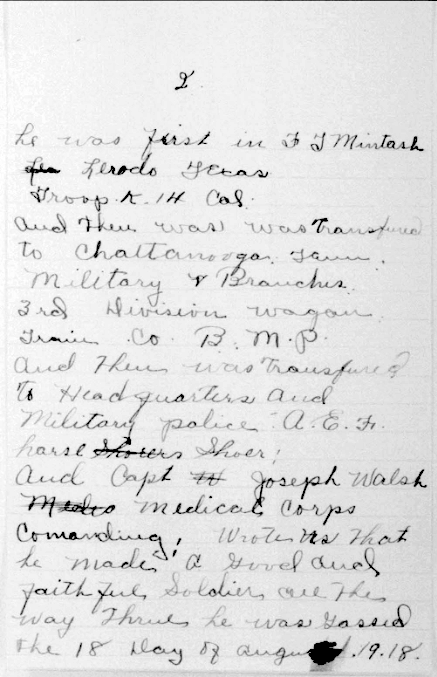 2
he was first in Ft Mintash
Lerado Texas
Troop. K. 14 Cal.
and Then was was transfured
to Chattanooga. Tenn.
Military & Branches.
3rd Division wagan
Train. Co. B. M. P.
and Then was transfured
to Headquarters and
Military police A. E. F.
harse Shoers Shoer;
and Capt Joseph Walsh
Medic Medical Corps
Comanding; Wrote us That
he made a Good and
faithful Soldier all The
way Thrue he was Gassed
the 18 Day of August. 19.18.